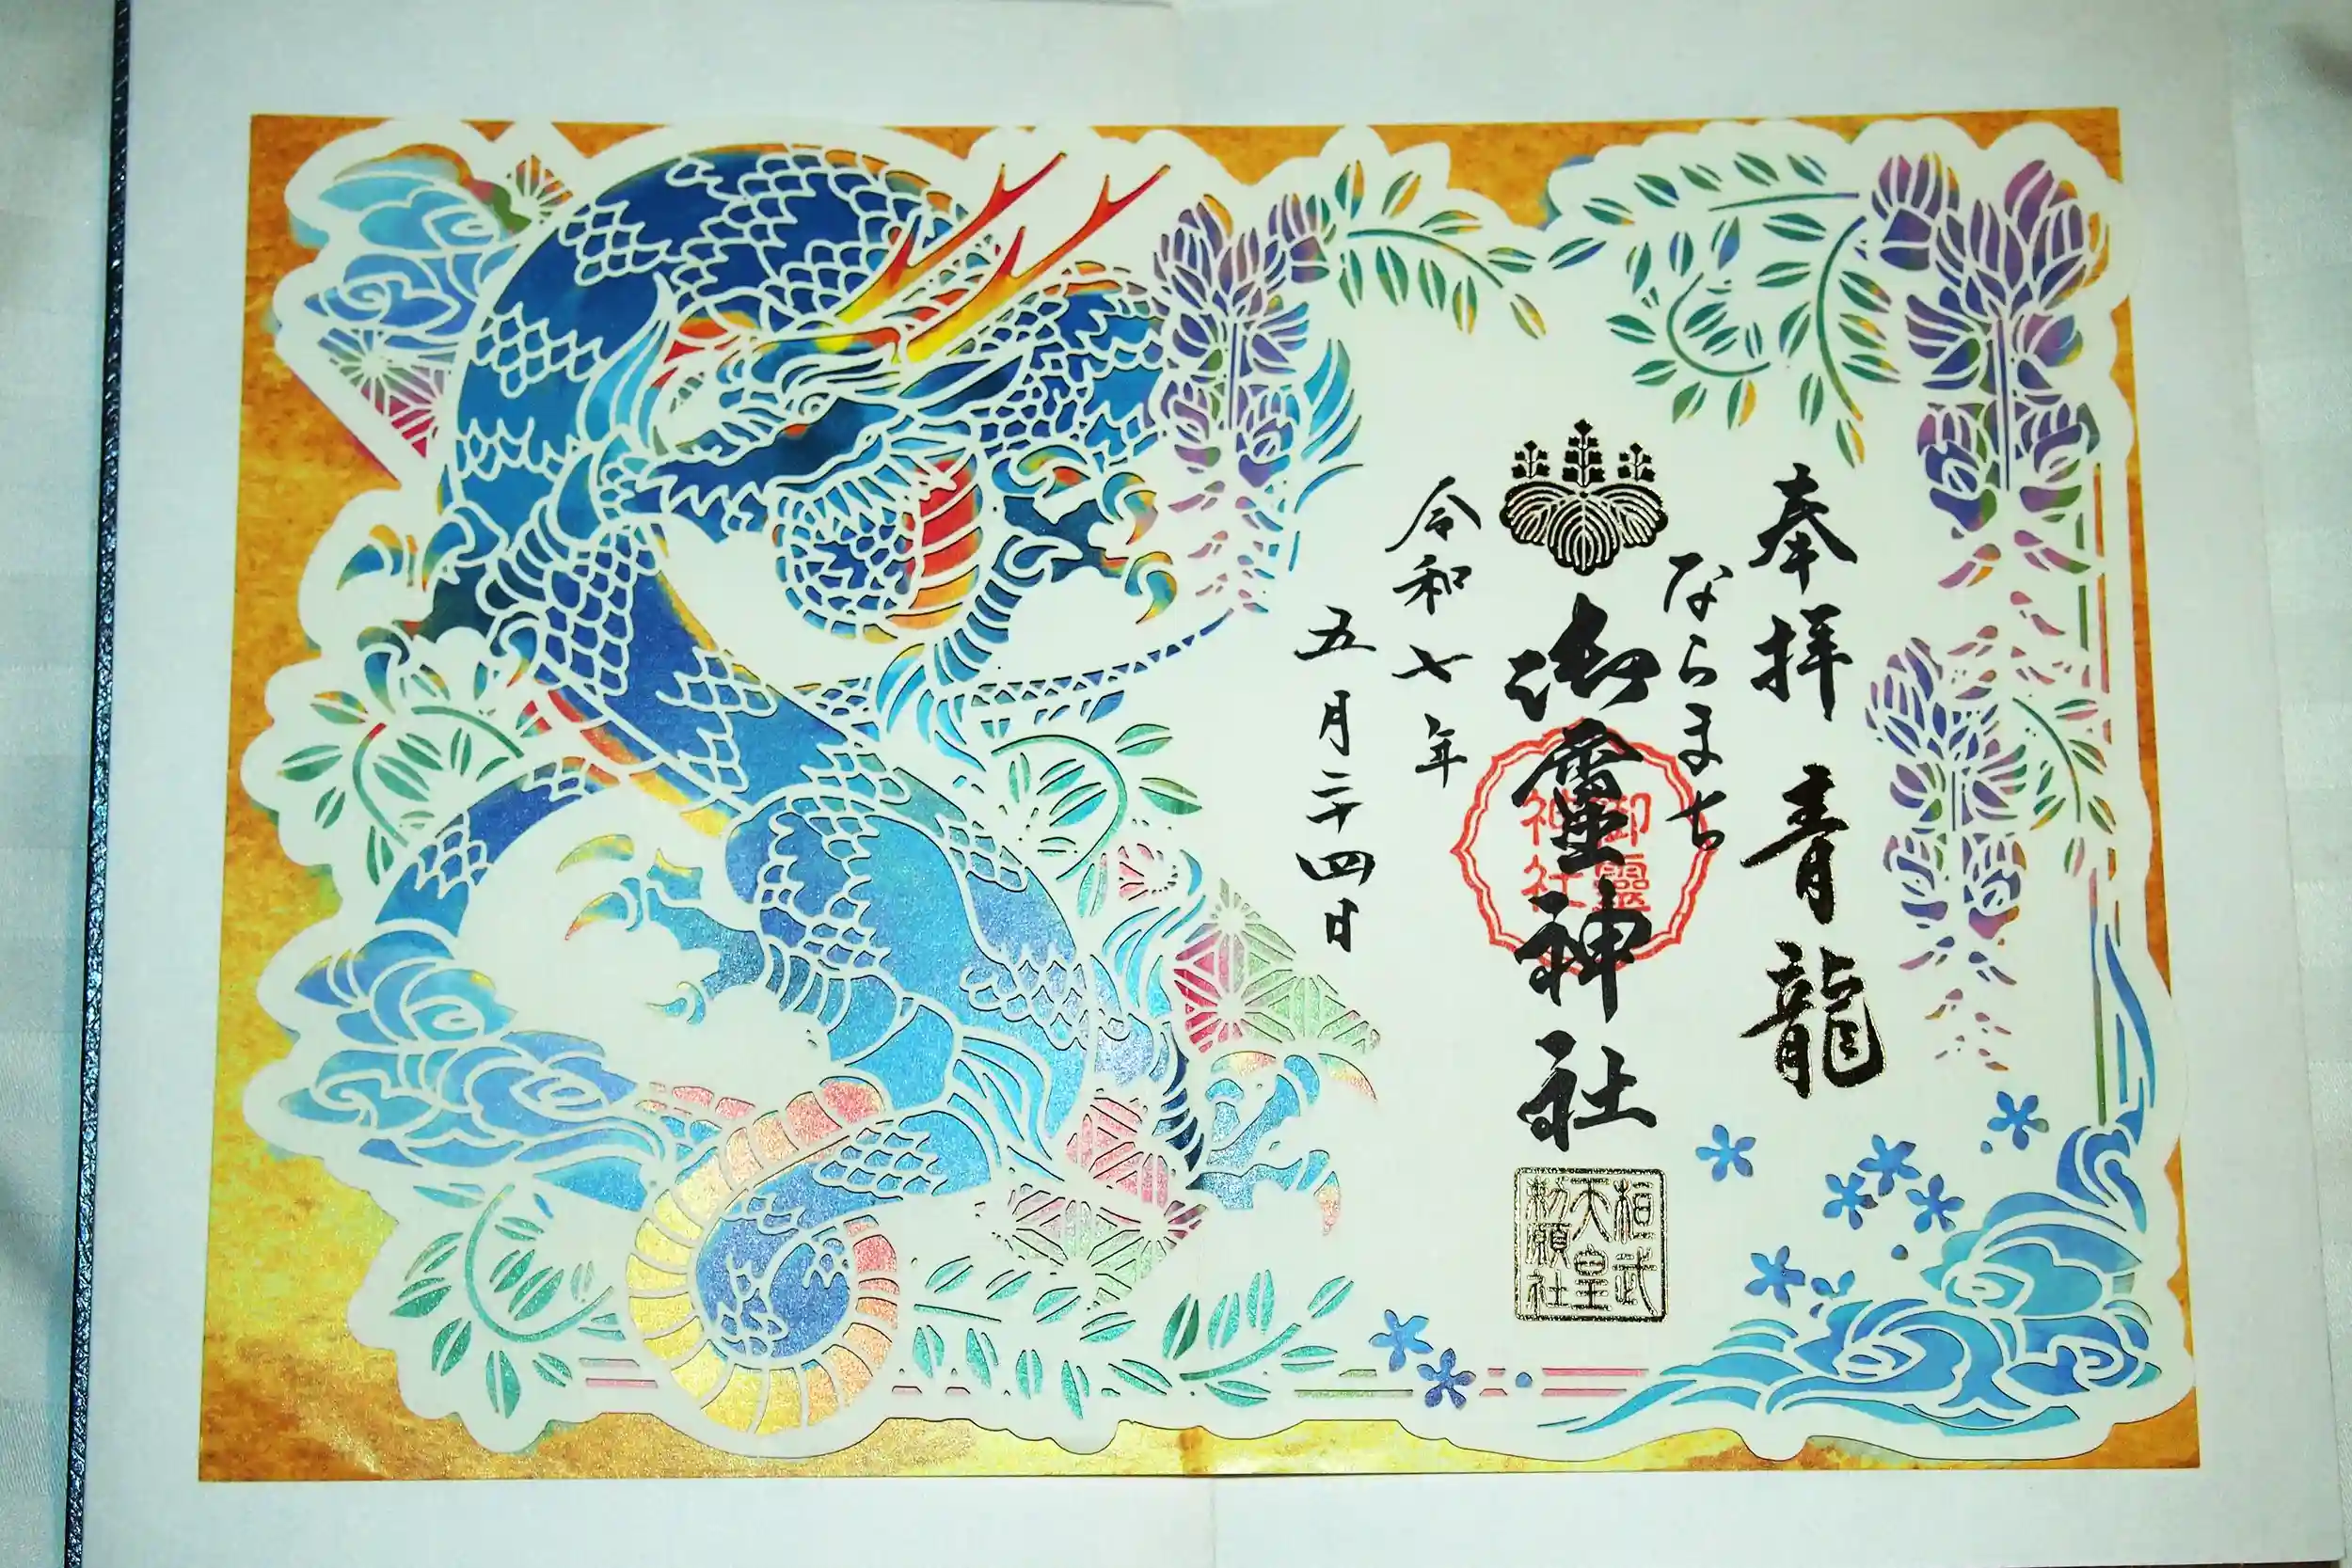 奉拝 青龍
ならまち
御霊神社
御靈
神社
桓武
天皇
勅願社
令和七年
五月二十四日